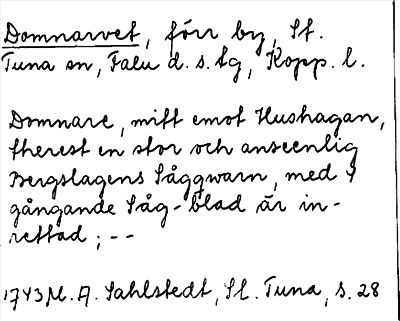 Domnarvet, förr by, St.
Tuna sn, Falu d. s. tg, Kopp. l.
Domnare, mitt emot Hushagan,
therest en stor och anseenlig
Bergslagens Sågqwarn, med 9
gångande Såg-blad är in-
rettad; --
1743 M. A. Sahlstedt, St. Tuna, s. 28